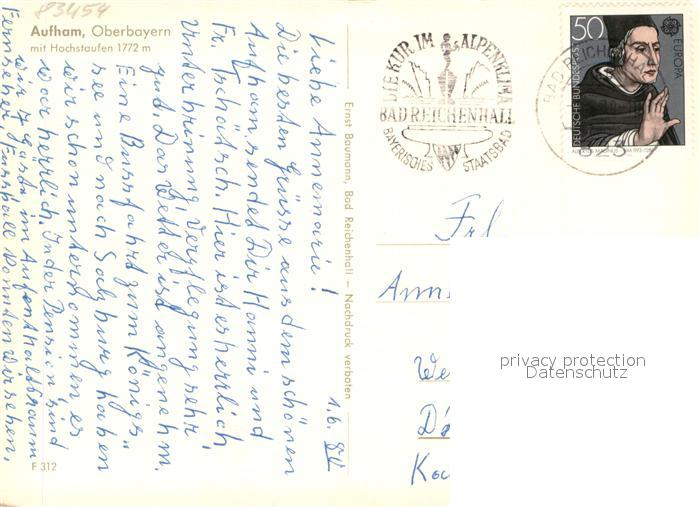 83454
Aufham, Oberbayern
mit Hochstaufen 1772 m
1.6. 80
Liebe Annemarie!
Die besten Grüsse aus dem schönen
Aufham sendet Dir Hanni und
Fr. Tschätsch. Hier ist es herrlich
Unterbringung, Verpflegung sehr
gut. Das Wetter ist angenehm.
Eine Bussfahrt zum Königs-
see und nach Salzburg haben
wir schon unternommen, es
war herrlich. In der Pension sind
wir 7 Gäste im Aufenthaltsraum
Fernseher Fussball konnten wir sehen.
F 312
Ernst Baumann, Bad Reichenhall — Nachdruck verboten
DIE KUR IM ALPENKLIMA
BAD REICHENHALL
BAYERISCHES STAATSBAD
BAD REICHENHALL
50
EUROPA
DEUTSCHE BUNDESPOST
Frl
Ann
We
Dö
Koc
privacy protection
Datenschutz